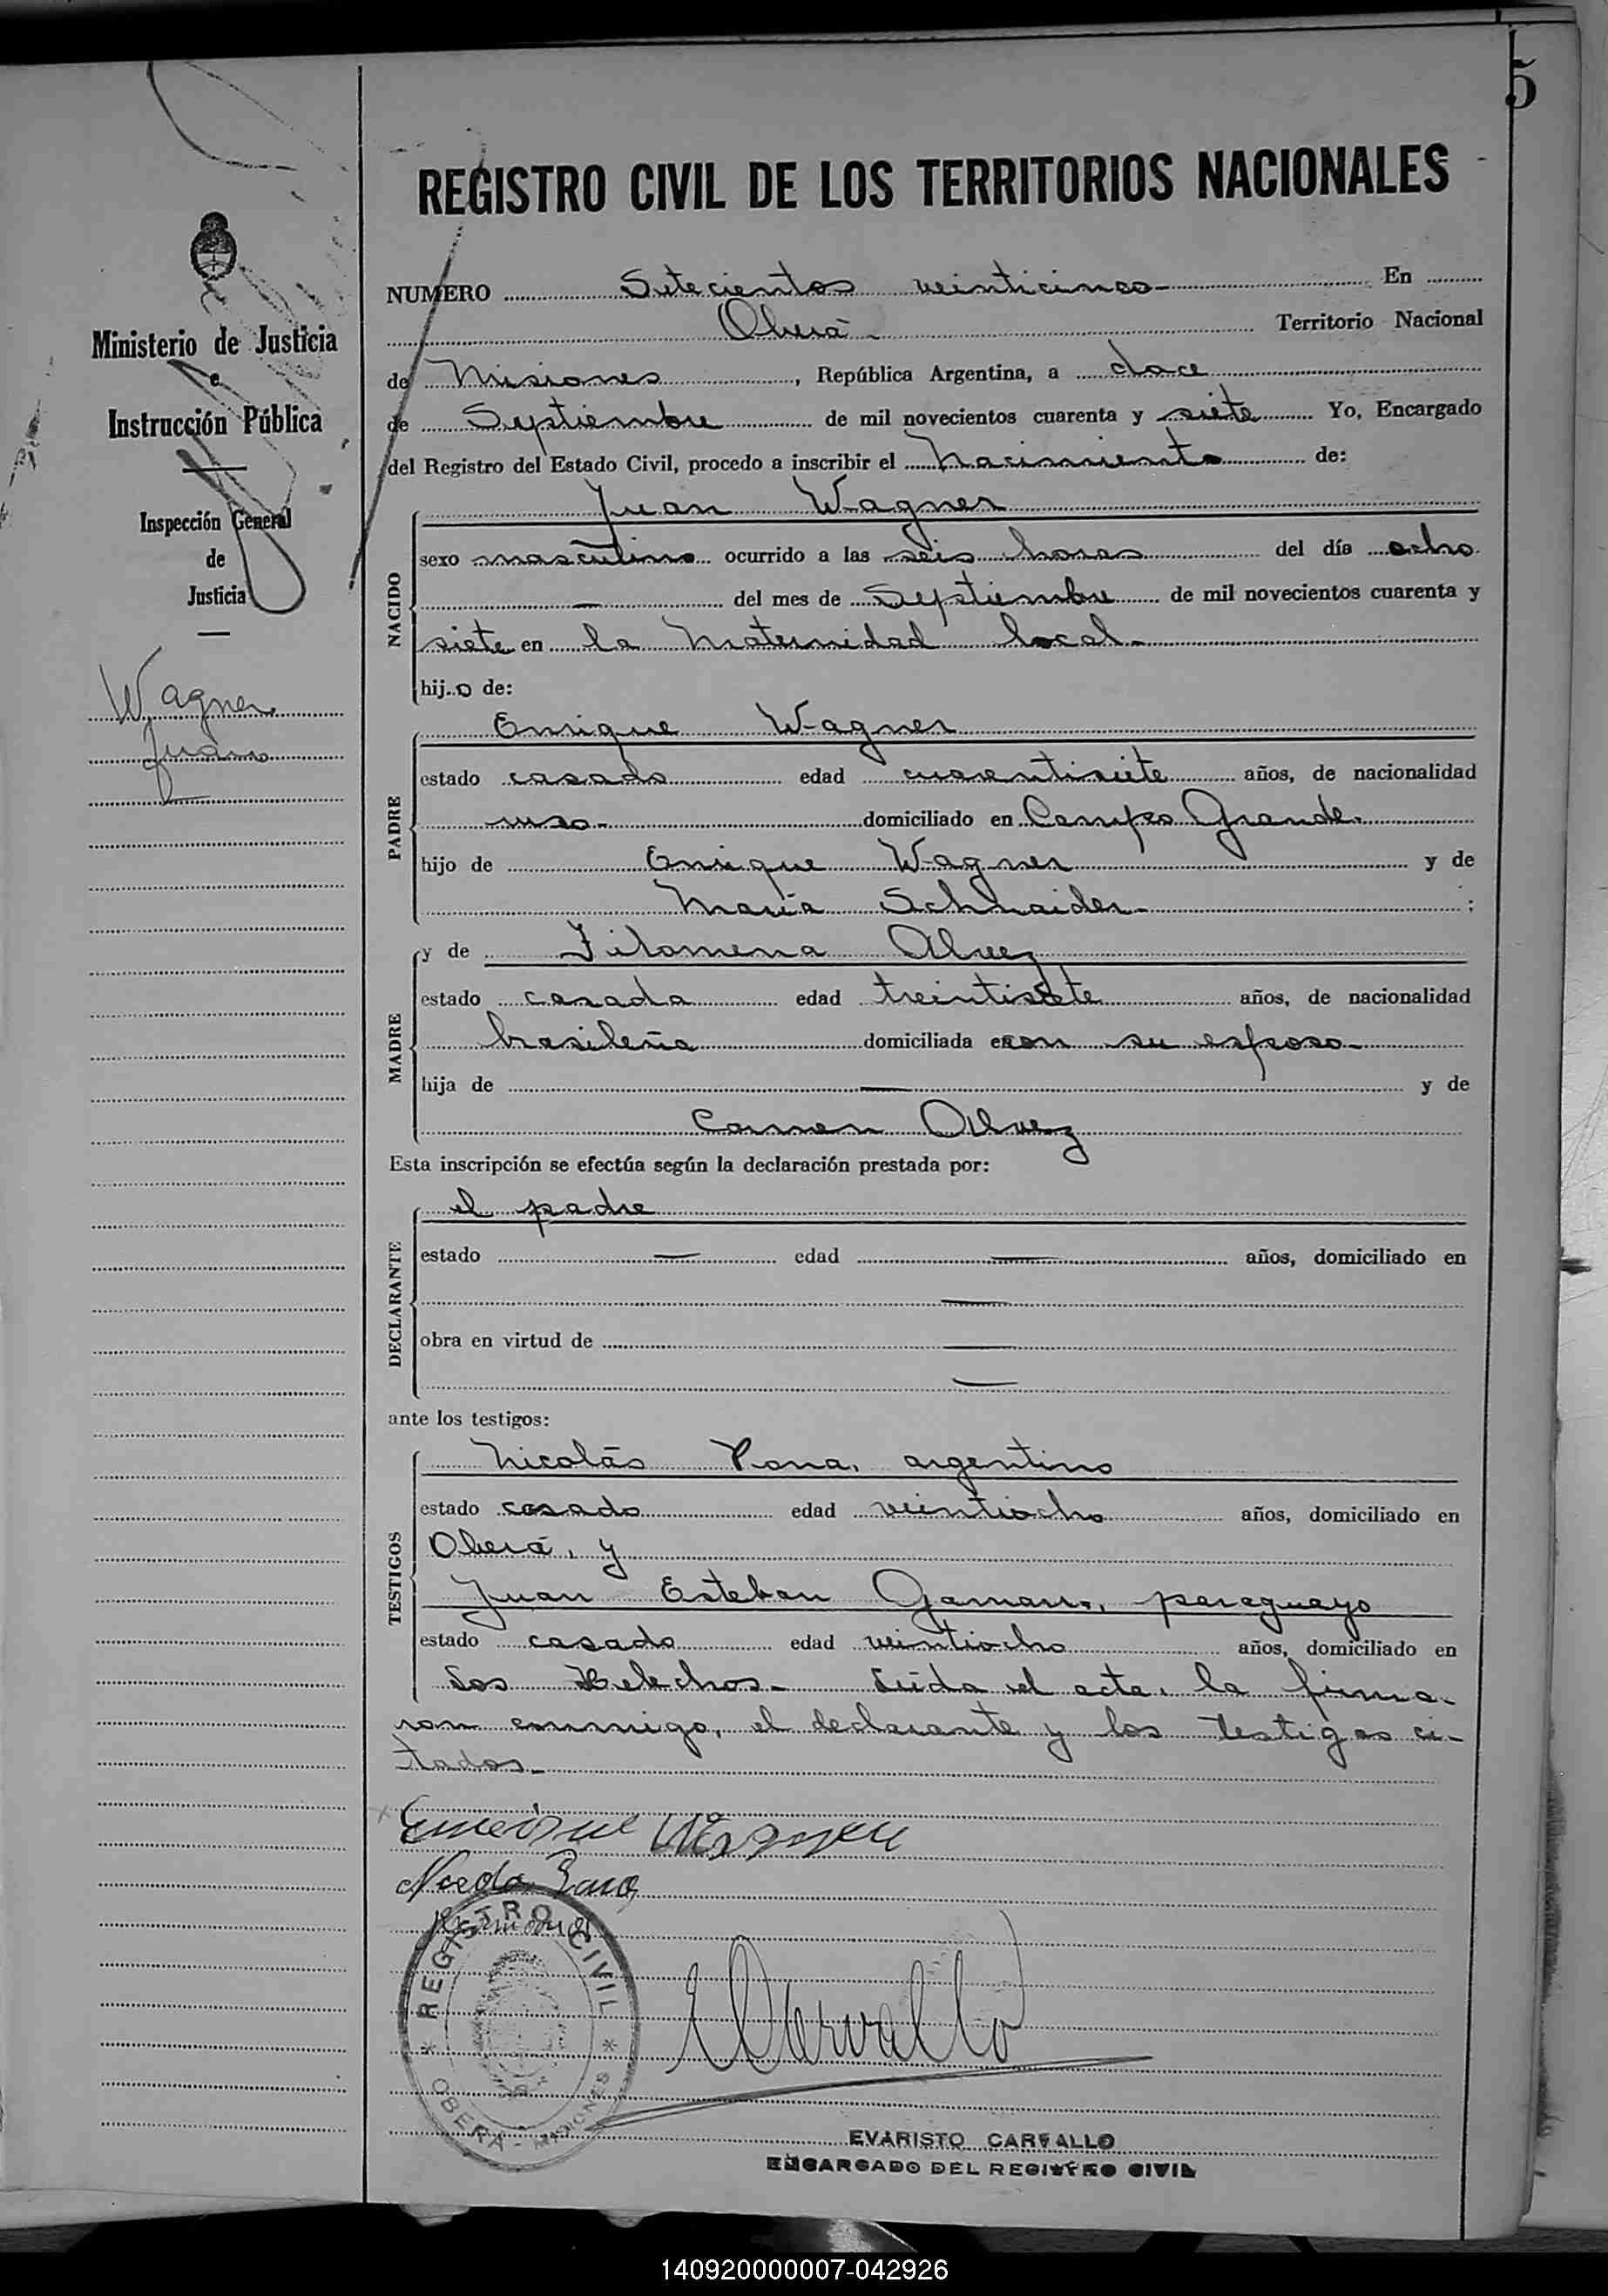 5
REGISTRO CIVIL DE LOS TERRITORIOS NACIONALES
Ministerio de Justicia
e
Instrucción Pública
Inspección General
de
Justicia
Wagner
Juan
NUMERO Setecientos veinticinco- En
Oberá- Territorio Nacional
de Misiones, República Argentina, a doce
de Septiembre de mil novecientos cuarenta y siete Yo, Encargado
del Registro del Estado Civil, procedo a inscribir el nacimiento de:
NACIDO
Juan Wagner
sexo masculino ocurrido a las seis horas del día ocho
— del mes de Septiembre de mil novecientos cuarenta y
siete en la Maternidad local-
hijo de:
PADRE
Enrique Wagner
estado casado edad cuarentisiete años, de nacionalidad
ruso- domiciliado en Campo Grande.
hijo de Enrique Wagner y de
María Schnaider- ;
MADRE
y de Filomena Alvez
estado casada edad treintisiete años, de nacionalidad
brasileña domiciliada con su esposo-
hija de — y de
Carmen Alvez
Esta inscripción se efectúa según la declaración prestada por:
DECLARANTE
el padre
estado — edad — años, domiciliado en
—
obra en virtud de —
—
ante los testigos:
TESTIGOS
Nicolás argentino
estado casado edad veintiocho años, domiciliado en
Oberá, y
Juan Esteban paraguayo
estado casado edad veintiocho años, domiciliado en
Los Helechos- Leída el acta, la firma-
ron conmigo, el declarante y los testigos ci-
tados-
REGISTRO CIVIL
OBERÁ - MISIONES
E Carvallo
EVARISTO CARVALLO
ENCARGADO DEL REGISTRO CIVIL
140920000007-042926